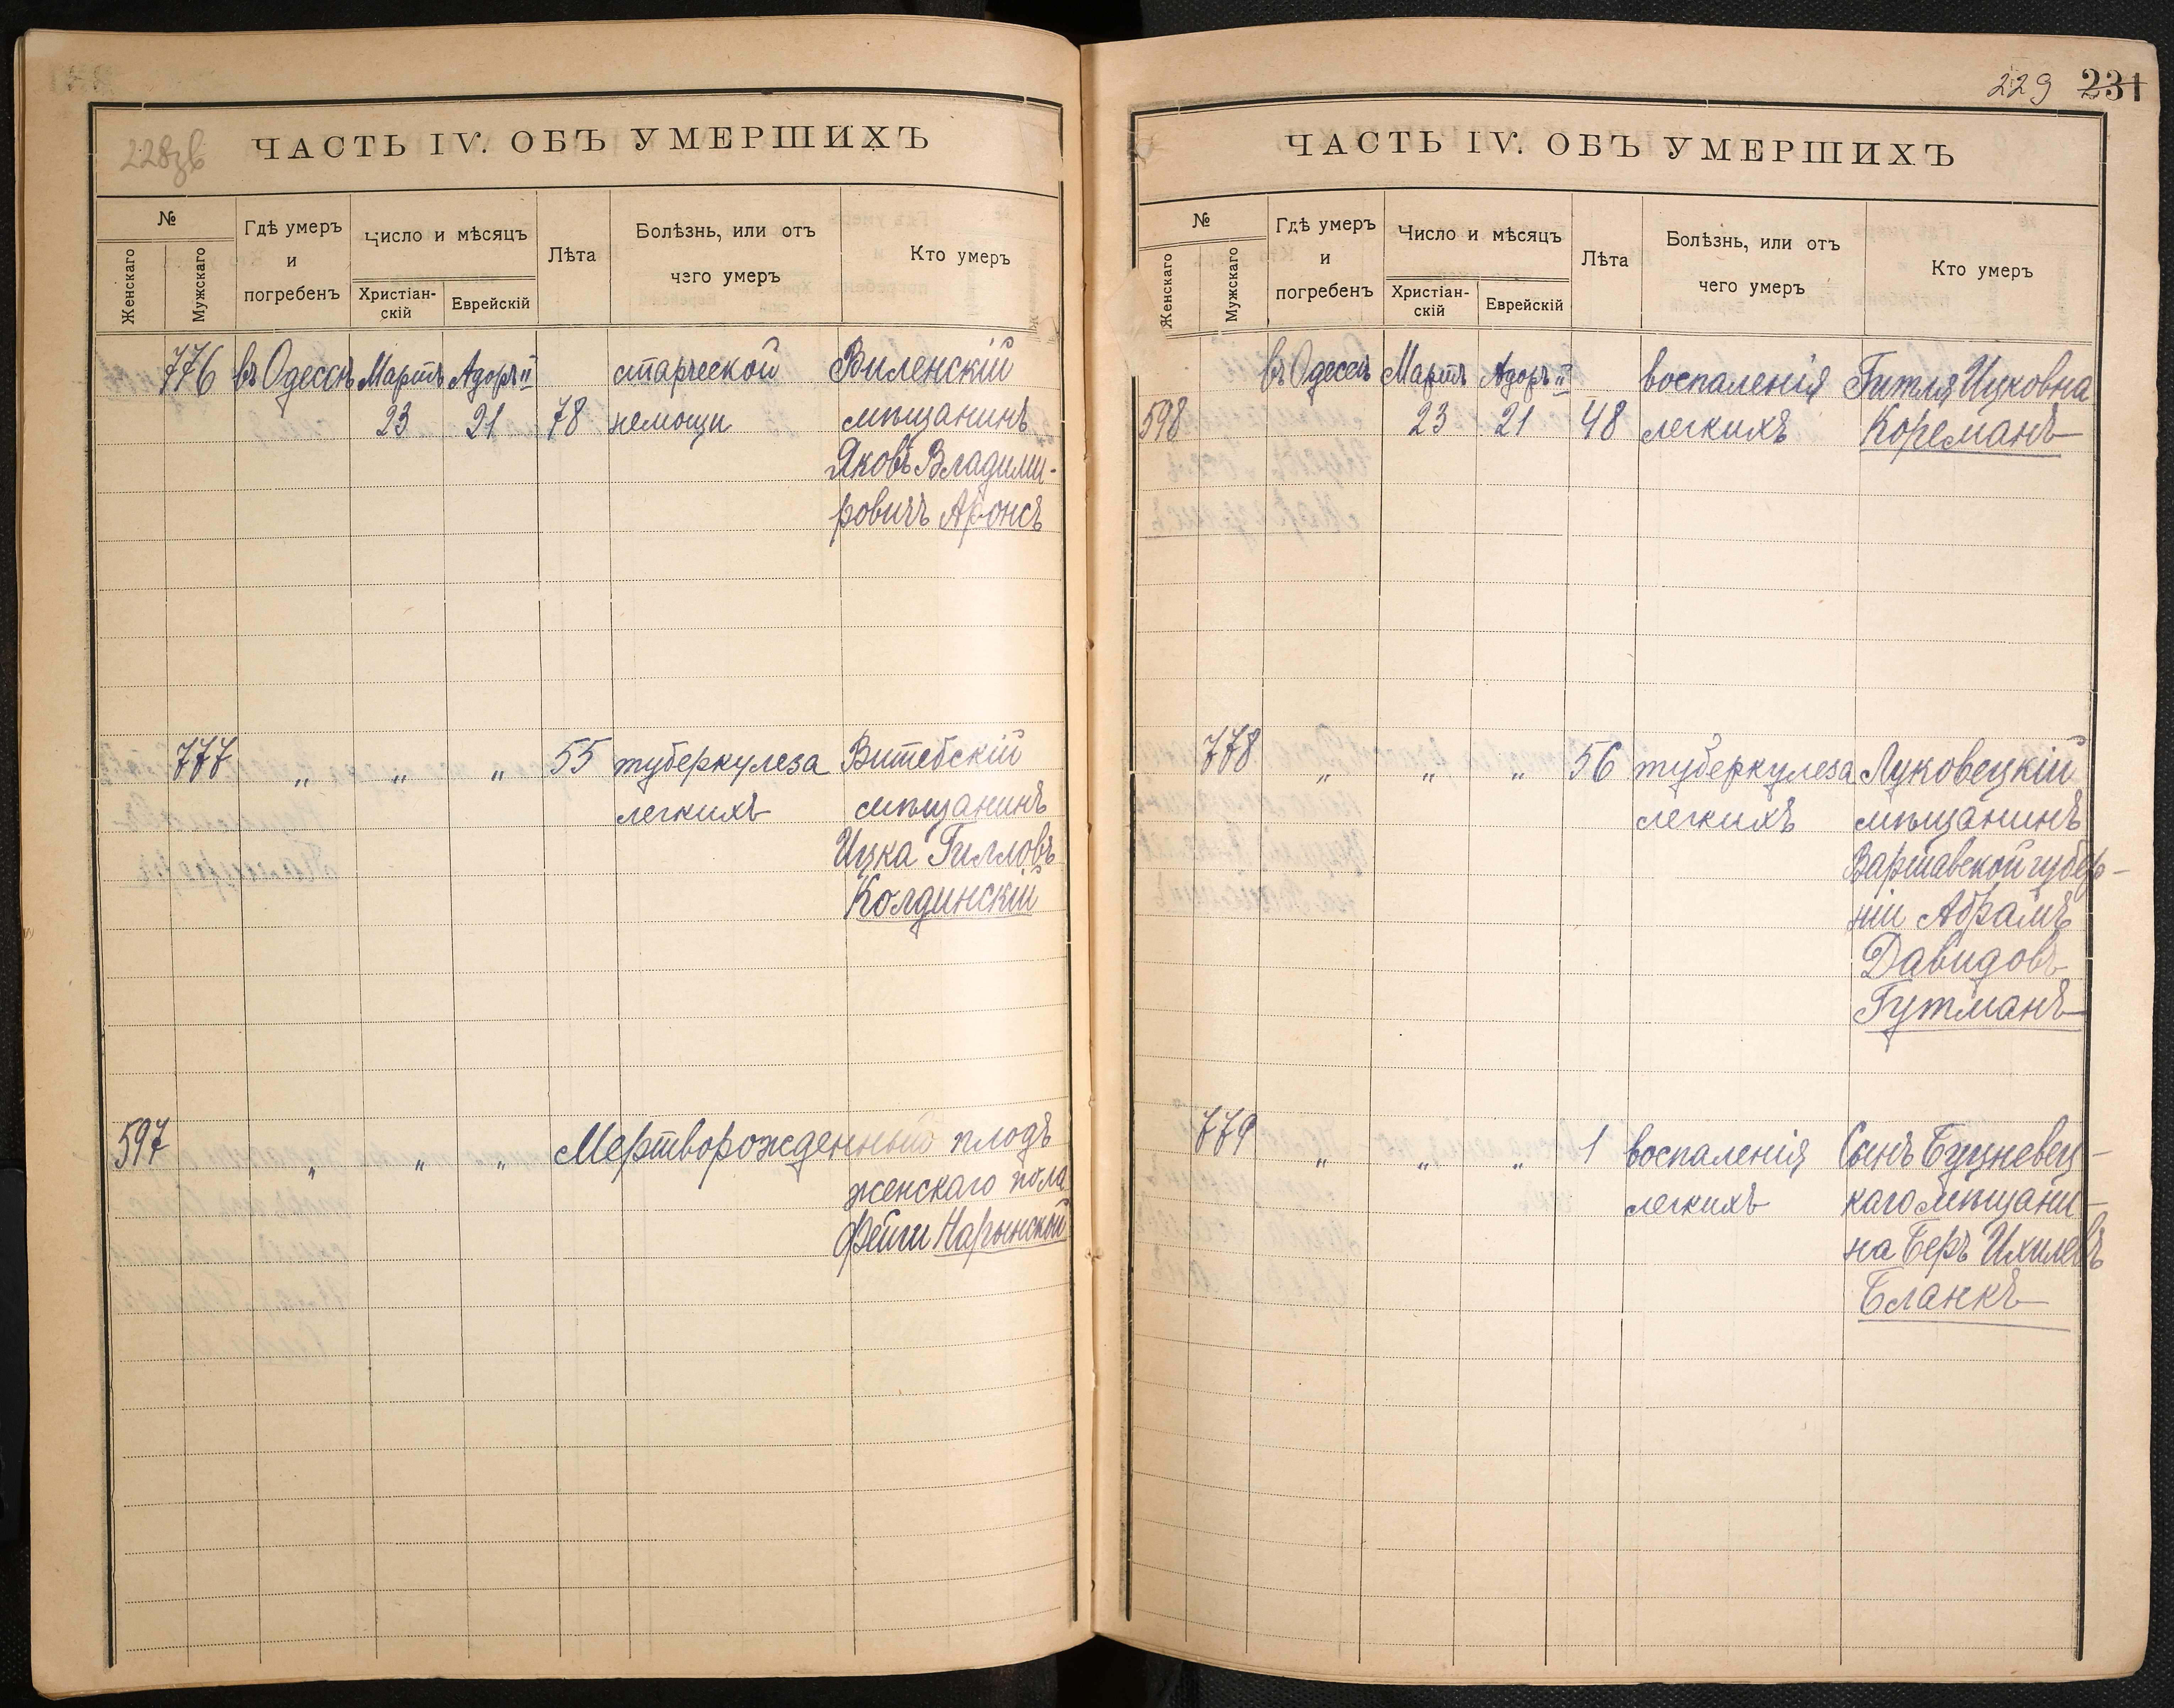 228зв
ЧАСТЬ IV. ОБЪ УМЕРШИХЪ
№
Женскаго
Мужскаго
Гдѣ умеръ
и
погребенъ
Число и мѣсяцъ
Христіан-
скій
Еврейскій
Лѣта
Болѣзнь, или отъ
чего умеръ
Кто умеръ
776 въ Одессѣ Мартъ Адоръ II старческой Виленскій
23 21 78 немощи мѣщанинъ
Яковъ Владими-
ровичъ Аронсъ
777 " " " 55 туберкулеза Витебскій
легкихъ мѣщанинъ
Ицка Гилловъ
Колдинскій
597 " " " Мертворожденный плодъ
женскаго пола
Фейги Нарынской
229 231
ЧАСТЬ IV. ОБЪ УМЕРШИХЪ
№
Женскаго
Мужскаго
Гдѣ умеръ
и
погребенъ
Число и мѣсяцъ
Христіан-
скій
Еврейскій
Лѣта
Болѣзнь, или отъ
чего умеръ
Кто умеръ
въ Одессѣ Мартъ Адоръ II воспаленія Гитля Ицковна
598 23 21 48 легкихъ Кореманъ
778 " " " 56 туберкулеза Луковецкій
легкихъ мѣщанинъ
Варшавской губер-
ніи Абрамъ
Давидовъ
Гутманъ
779 " " " 1 воспаленія Сынъ Буцневец-
легкихъ каго мѣщани-
на Беръ Ихилевъ
Бланкъ